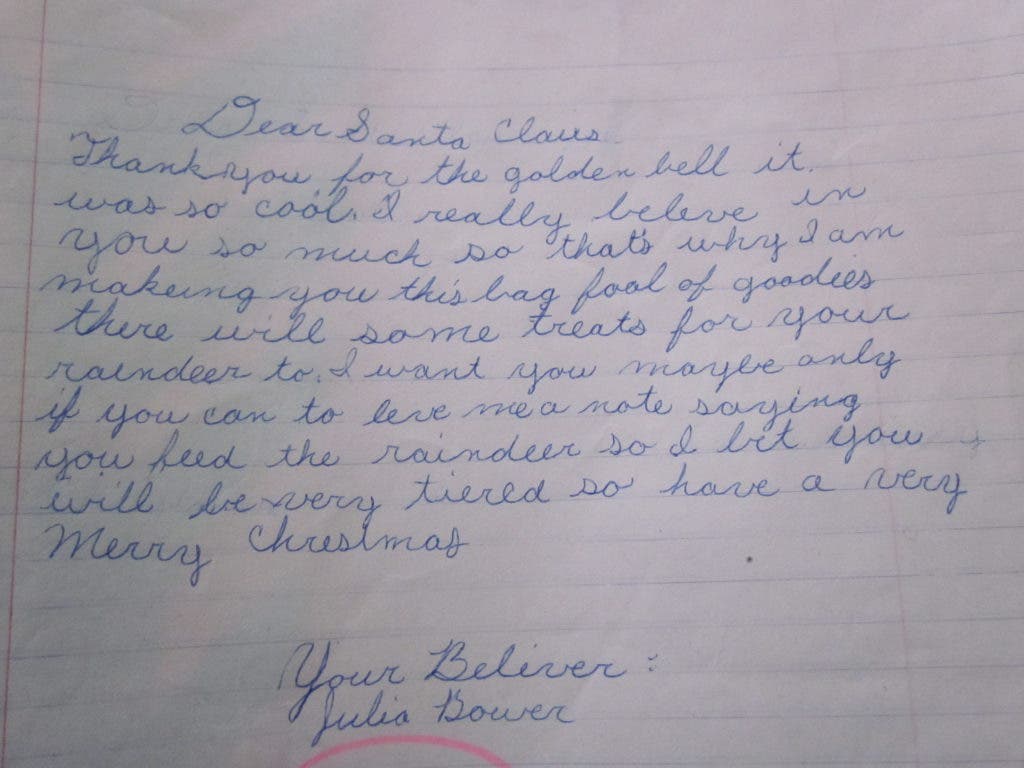 Dear Santa Claus
Thank you for the golden bell it
was so cool. I really beleve in
you so much so that's why I am
makeing you this bag fool of goodies
there will some treats for your
raindeer to. I want you maybe only
if you can to leve me a note saying
you feed the raindeer so I bet you
will be very tiered so have a very
Merry Chrestmas
Your Beliver :
Julia Bower